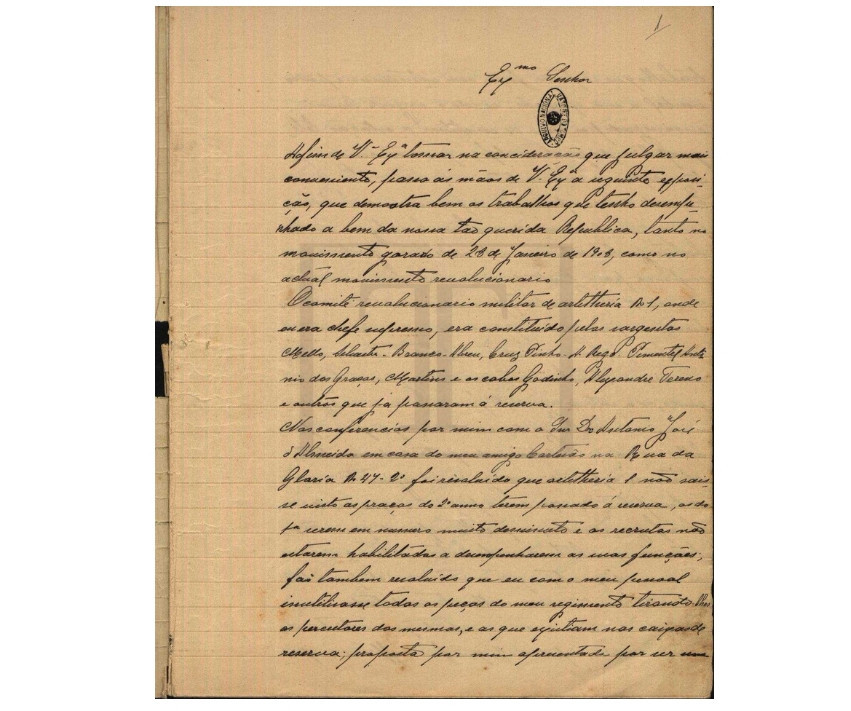 1
Exmo Senhor
Afim de V. Exª tomar na concideração que julgar mais
conveniente, passo ás mãos de V. Exª a seguinte exposi-
ção, que demostra bem os trabalhos que tenho desempe-
nhado a bem da nossa tão querida Republica, tanto no
movimento gorado de 28 de Janeiro de 1908, como no
actual movimento revolucionario
O comité revolucionario militar de artilheria Nº 1, onde
eu era chefe supremo, era constituido pelos sargentos
Mello, Branco Abreu, Cruz Pinto Rego Pimentel, Anto
nio das Graças, Martins e os cabos Godinho, Alexandre
e outros que já passaram á reserva.
Nas conferencias por mim com o Snr Dr Antonio José
d'Almeida em casa do meu amigo na Rua da
Gloria Nº 47-2º foi resolvido que artilheria 1 não sais-
se visto as praças do 2º anno terem passado á reserva, as do
1º serem em numero muito deminuto e os recrutas não
estarem habilitados a desempenharem as suas funcções;
foi tambem resolvido que eu com o meu pessoal
inutilisasse todas as peças do meu regimento tirando-lhes
os percutores das mesmas, e as que existiam nas caixas de
reserva; proposta por mim apresentada por ser uma